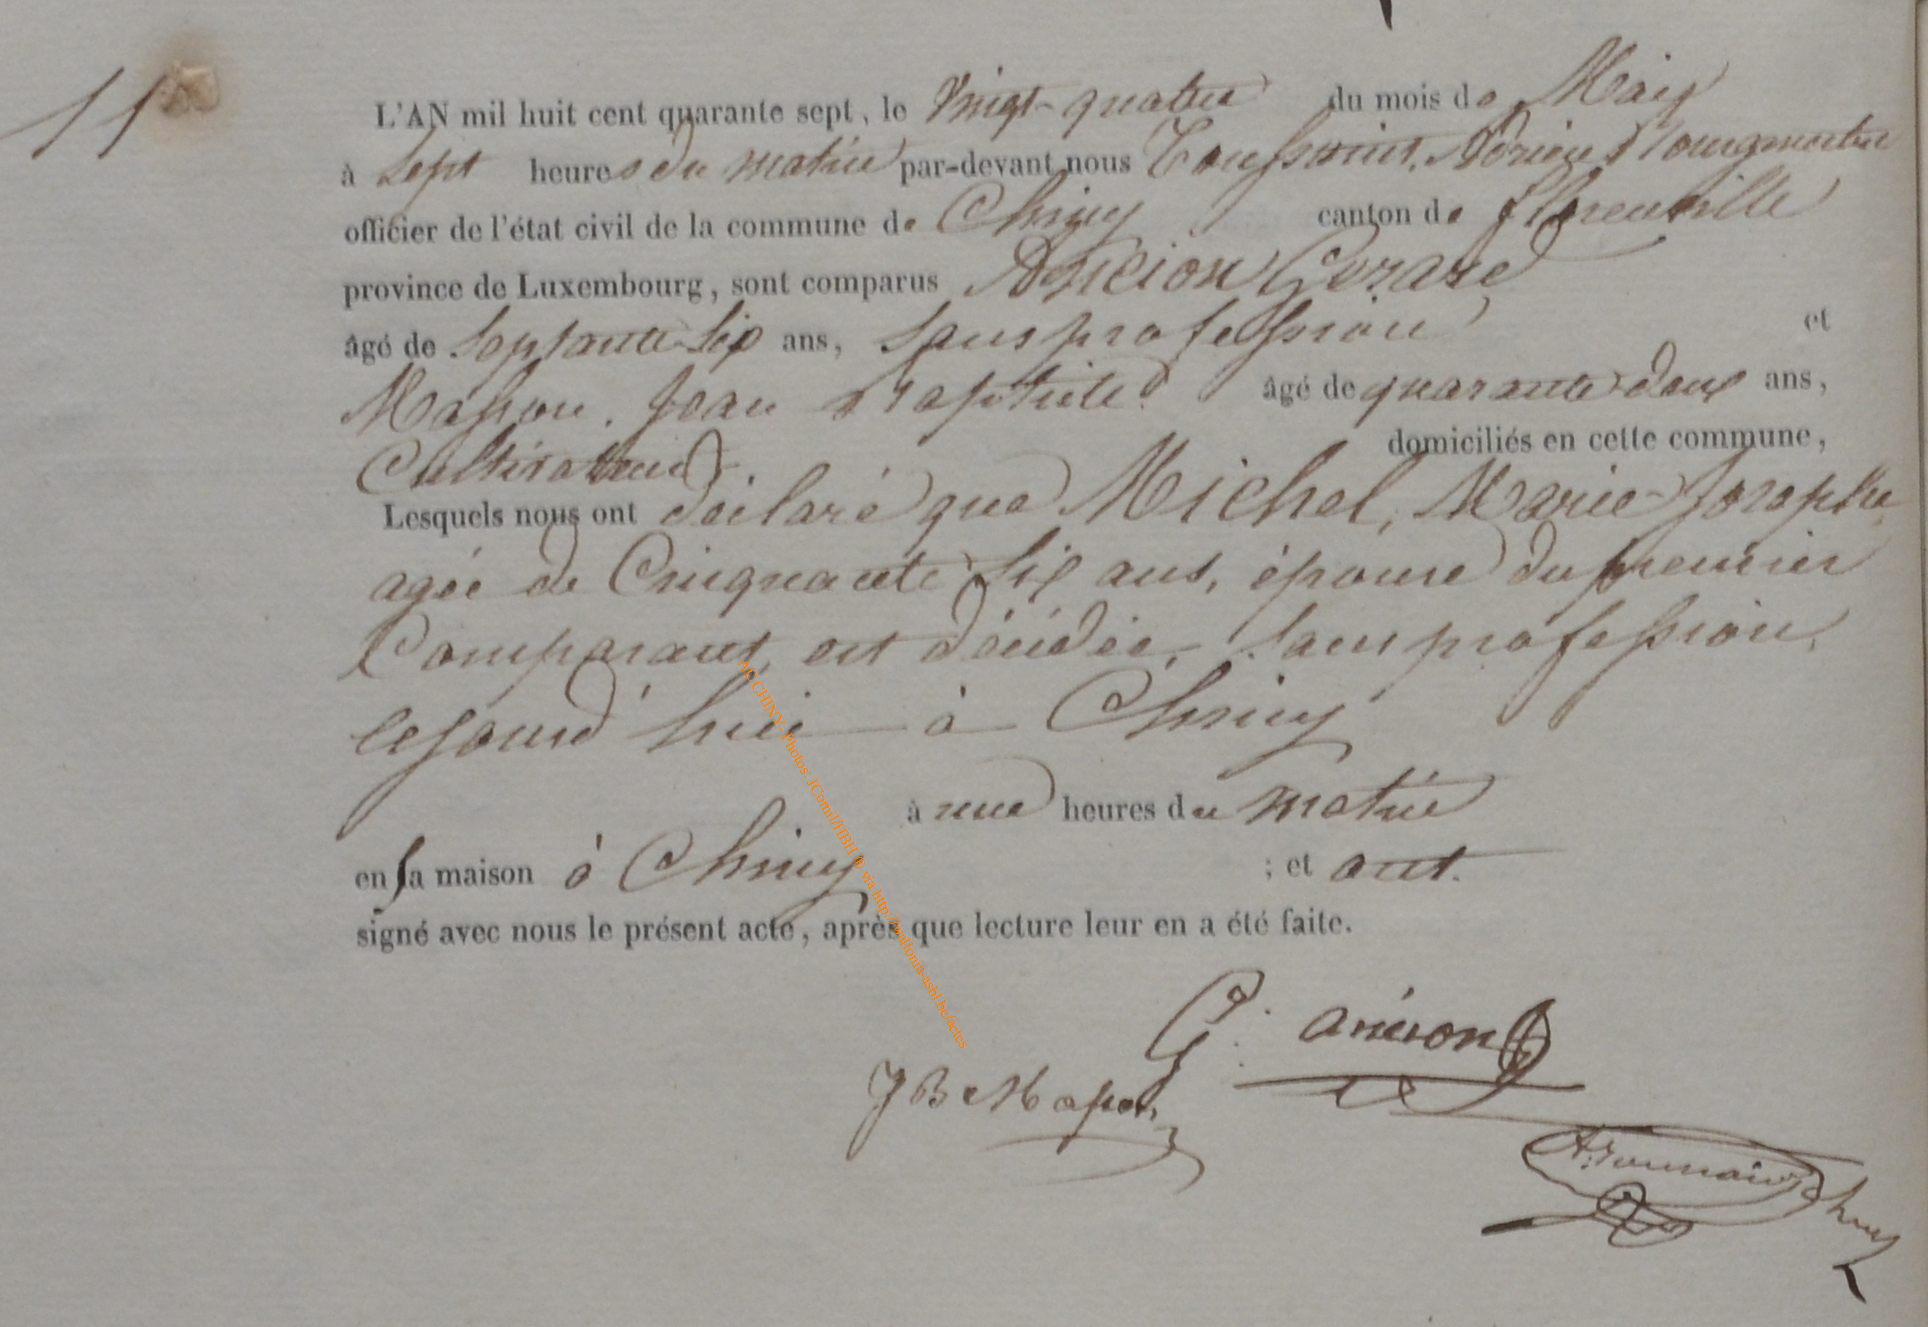 11
L'AN mil huit cent quarante sept, le Vingt-quatre du mois de Mai
à Sept heures du matin par-devant nous Toussaint, Adrien Bourgmestre
officier de l'état civil de la commune de Chiny canton de florenville
province de Luxembourg, sont comparus Ancion Gerard
âgé de Septante Six ans, Sans profession et
Masson, Jean Baptiste âgé de quarante deux ans,
Cultivateur domiciliés en cette commune,
Lesquels nous ont déclaré que Michel, Marie-Josephe
agée de Cinquante Six ans, épouse du premier
Comparant, est décédée, Sans profession,
cejourd'hui à Chiny
à une heures du matin
en sa maison à Chiny ; et ont
signé avec nous le présent acte, après que lecture leur en a été faite.
G. ancion
JB Masson
AC CHINY - Photos via http://